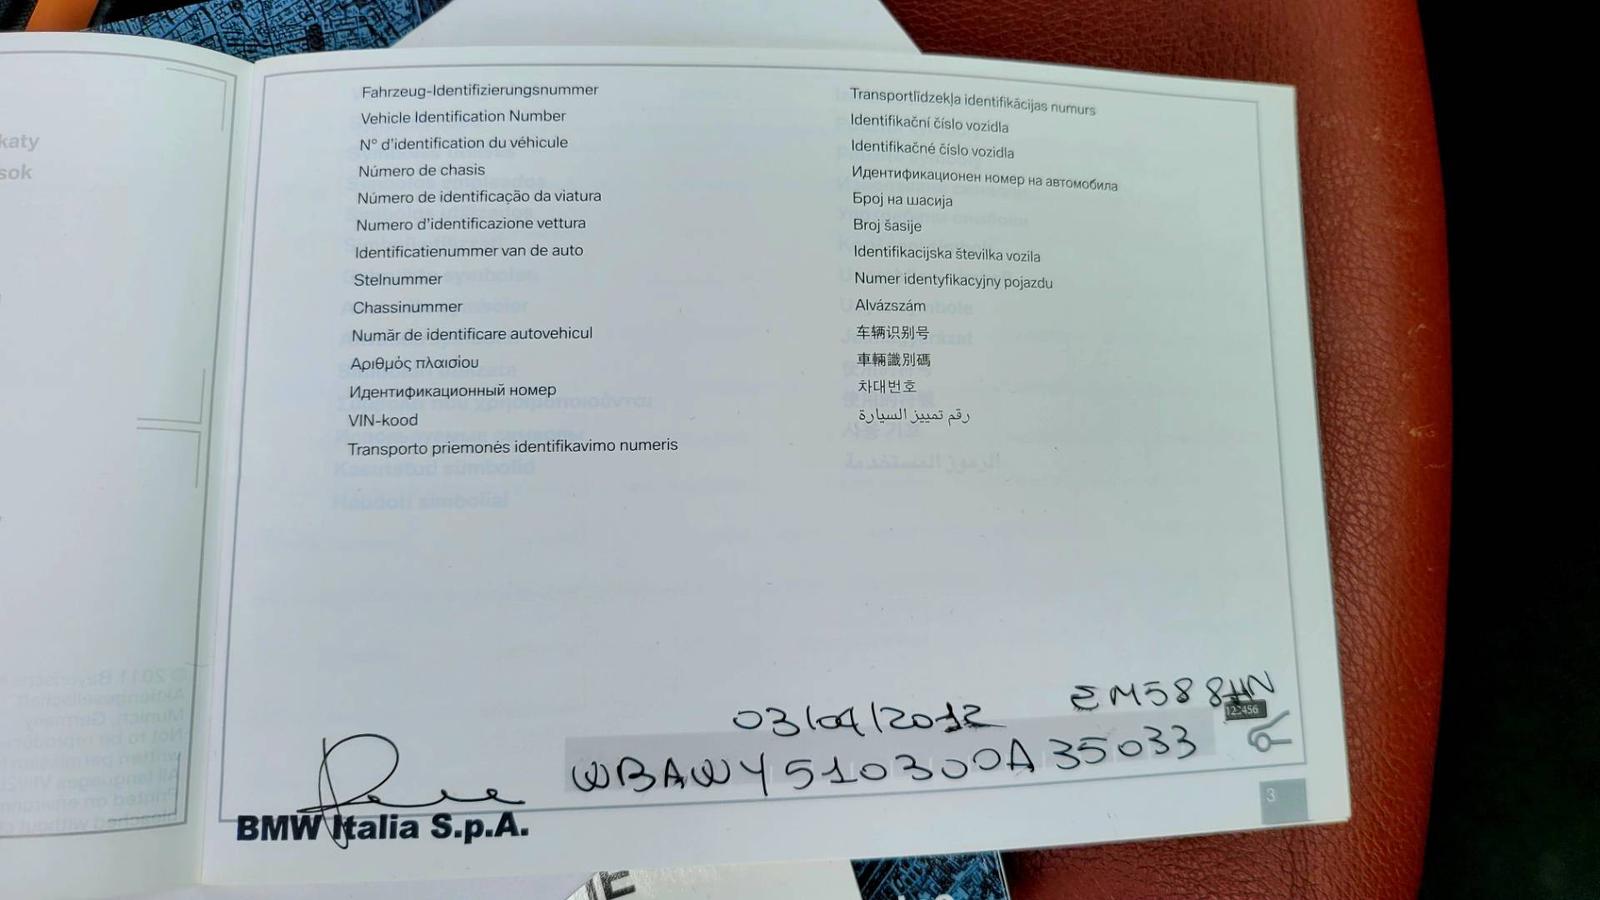 Fahrzeug-Identifizierungsnummer
Vehicle Identification Number
N° d'identification du véhicule
Número de chasis
Número de identificação da viatura
Numero d'identificazione vettura
Identificatienummer van de auto
Stelnummer
Chassinummer
Număr de identificare autovehicul
Αριθμός πλαισίου
Идентификационный номер
VIN-kood
Transporto priemonės identifikavimo numeris
Transportlīdzekļa identifikācijas numurs
Identifikační číslo vozidla
Identifikačné číslo vozidla
Идентификационен номер на автомобила
Број на шасија
Broj šasije
Identifikacijska številka vozila
Numer identyfikacyjny pojazdu
Alvázszám
车辆识别号
車輛識別碼
차대번호
رقم تمييز السيارة
EM588HN
123456
03/04/2012
WBAWY510300A35033
BMW Italia S.p.A.
3
katy
sok